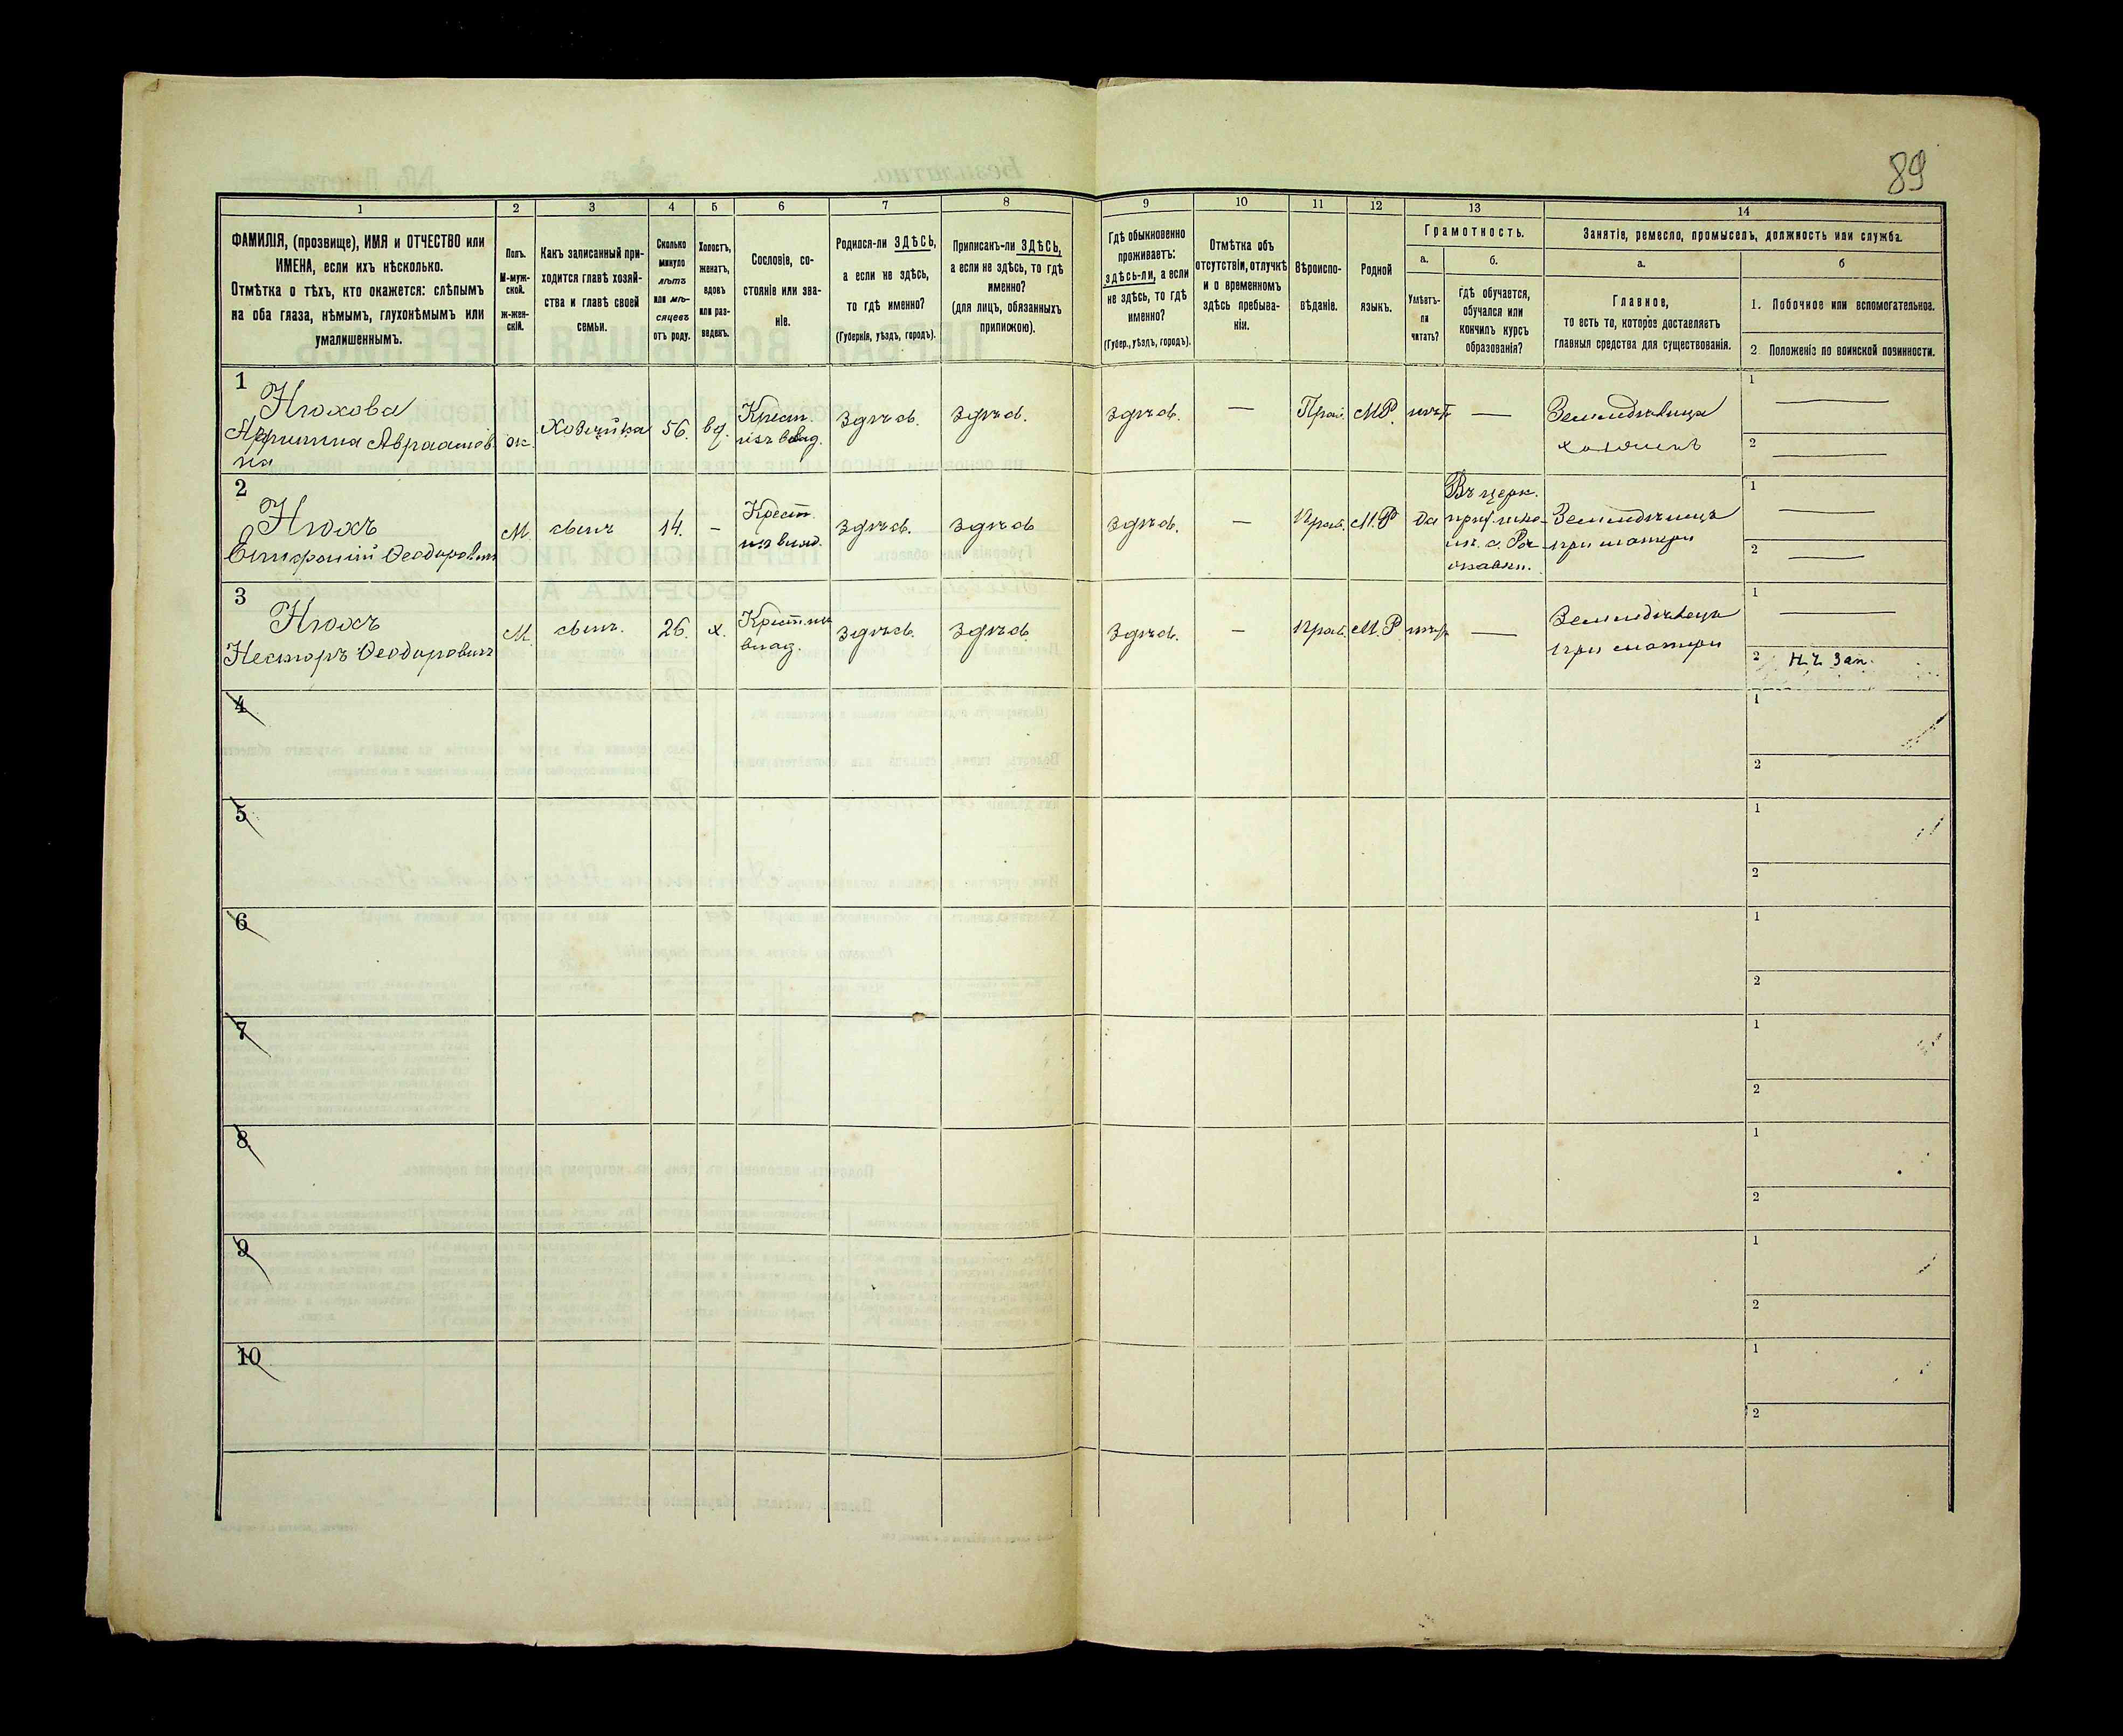 89
1 2 3 4 5 6 7 8 9 10 11 12 13 14
ФАМИЛІЯ, (прозвище), ИМЯ и ОТЧЕСТВО или
ИМЕНА, если ихъ нѣсколько.
Отмѣтка о тѣхъ, кто окажется: слѣпымъ
на оба глаза, нѣмымъ, глухонѣмымъ или
умалишеннымъ.
Полъ.
М-муж-
ской.
ж-жен-
скій.
Какъ записанный при-
ходится главѣ хозяй-
ства и главѣ своей
семьи.
Сколько
минуло
лѣтъ
или мѣ-
сяцевъ
отъ роду.
Холостъ,
женатъ,
вдовъ
или раз-
веденъ.
Сословіе, со-
стояніе или зва-
ніе.
Родился-ли ЗДѢСЬ,
а если не здѣсь,
то гдѣ именно?
(Губернія, уѣздъ, городъ).
Приписанъ-ли ЗДѢСЬ,
а если не здѣсь, то гдѣ
именно?
(для лицъ, обязанныхъ
припискою).
Гдѣ обыкновенно
проживаетъ:
здѣсь-ли, а если
не здѣсь, то гдѣ
именно?
(Губер., уѣздъ, городъ).
Отмѣтка объ
отсутствіи, отлучкѣ
и о временномъ
здѣсь пребыва-
ніи.
Вѣроиспо-
вѣданіе.
Родной
языкъ.
Грамотность.
а.
Умѣетъ-
ли
читать?
б.
гдѣ обучается,
обучался или
кончилъ курсъ
образованія?
Занятіе, ремесло, промыселъ, должность или служба.
а.
Главное,
то есть то, которое доставляетъ
главныя средства для существованія.
б
1. Побочное или вспомогательное.
2. Положеніе по воинской повинности.
1
Нюхова
Авраамов
на
ж.
Хозяйка
56.
вд.
Крест.
изъ влад.
здѣсь.
здѣсь.
здѣсь.
—
Прав.
М.Р.
нѣтъ
—
1
2
2
Нюхъ
Феодоровичъ
М.
сынъ
14.
—
Крест.
из влад.
здѣсь.
здѣсь
здѣсь.
—
Прав.
М.Р
да
Въ церк.
при матери
1
2
3
Нюхъ
Несторъ Феодоровичъ
М
сынъ.
26.
х.
Крест. из
влад.
здѣсь.
здѣсь
здѣсь.
—
Прав.
М.Р
нѣтъ
—
Земледѣлецъ
при матери
1
2 Н. Ч. Зап.
4 1
2
5 1
2
6 1
2
7 1
2
8 1
2
9 1
2
10 1
2